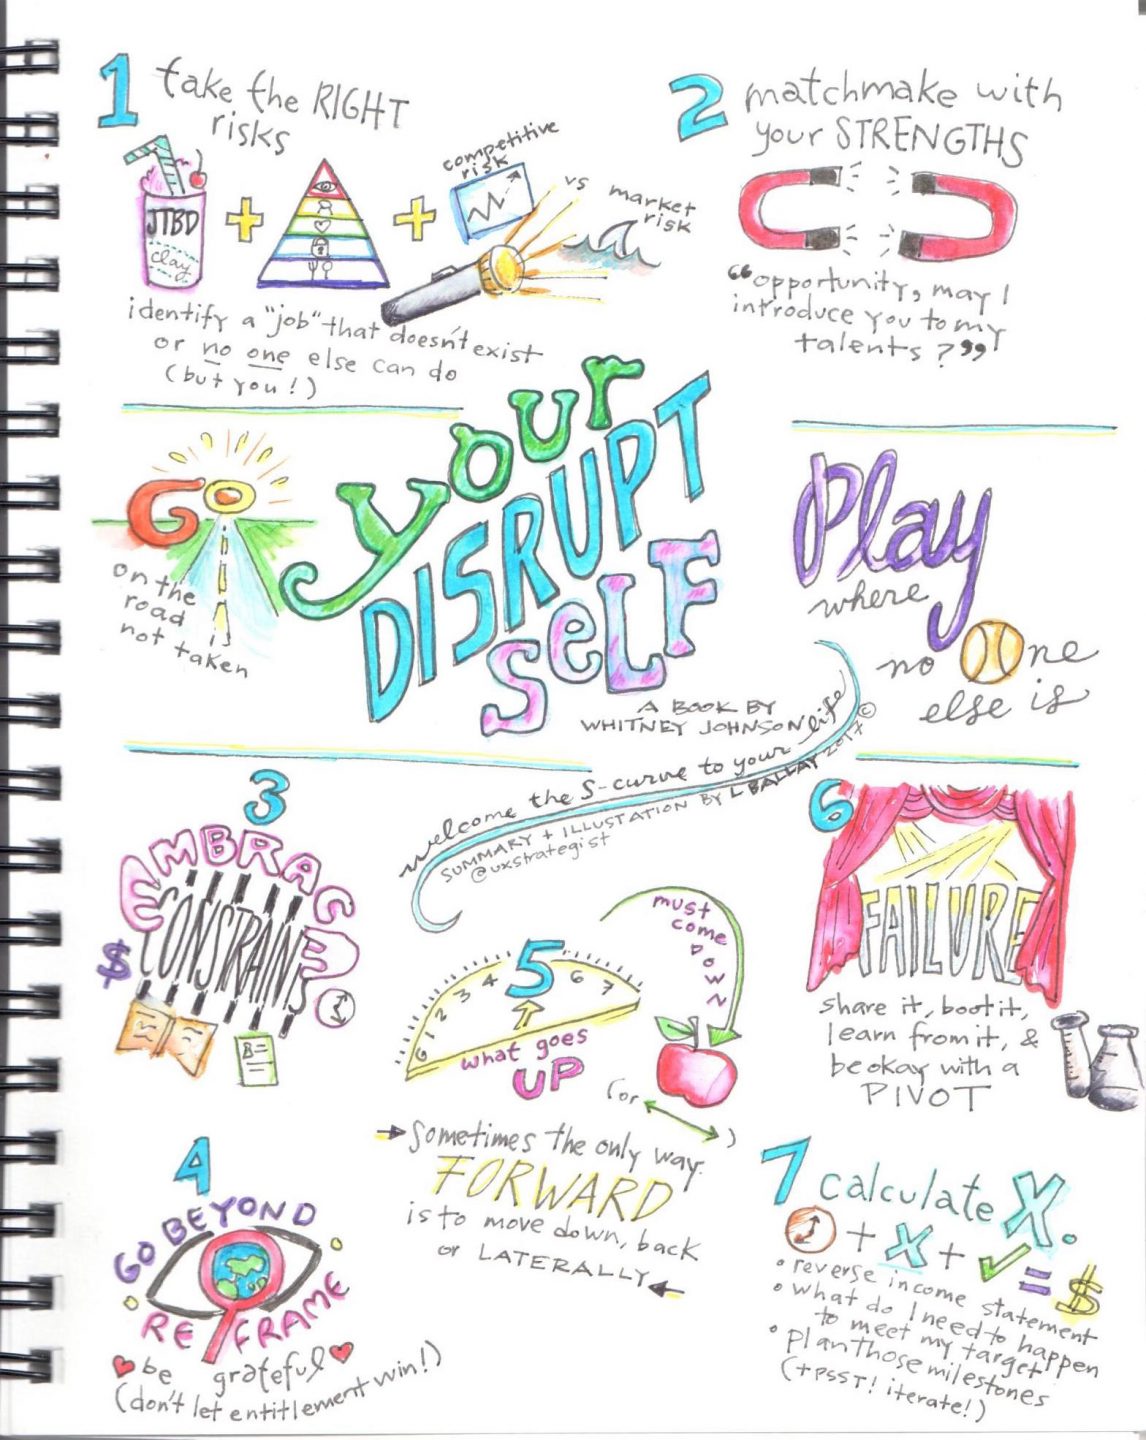 1 take the RIGHT
risks
JTBD
clay
+
+
competitive
risk
vs market
risk
identify a "job" that doesn't exist
or no one else can do
(but you!)
2 matchmake with
your STRENGTHS
"opportunity, may I
introduce you to my
talents?"
GO
on the
road
not taken
your
DISRUPT
SELF
A BOOK BY
WHITNEY JOHNSON
welcome the S-curve to your life
SUMMARY + ILLUSTATION BY L BALLAY 2017 ©
@uxstrategist
Play
where
no One
else is
3
EMBRACE
CONSTRAINTS
$
B=
4
GO BEYOND
REFRAME
be grateful
(don't let entitlement win!)
0 1 2 3 4 5 6 7
what goes
UP
must
come
DOWN
(or )
Sometimes the only way
FORWARD
is to move down, back
or LATERALLY
6
FAILURE
share it, boot it,
learn from it, &
be okay with a
PIVOT
7 calculate X.
+ X + ✓ = $
• reverse income statement
• what do I need to happen
to meet my target
• plan those milestones
(+ PSST! iterate!)